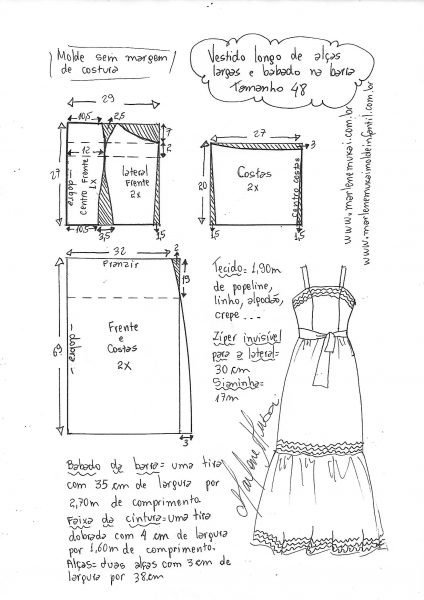 Molde sem margem
de costura
Vestido longo de alças
largas e babado na barra
Tamanho 48
29
10,5
2,5
7
2
27
12
dobra
Centro Frente
1x
lateral
Frente
2x
10,5
3,5
1,5
27
3
20
Costas
2x
Centro costas
1,5
1,5
www.marlenemukai.com.br
www.marlenemukaimoldeinfantil.com.br
32
2
Franzir
19
69
dobra
Frente
e
Costas
2X
3
Tecido= 1,90m
de popeline,
linho, algodão,
crepe...
Ziper invisível
para a lateral=
30 cm
Sianinha=
17m
Marlene Mukai
Babado da barra= uma tira
com 35 cm de largura por
2,70m de comprimento.
Faixa da cintura= uma tira
dobrada com 4 cm de largura
por 1,60m de comprimento.
Alças= duas alças com 3 cm de
largura por 38cm